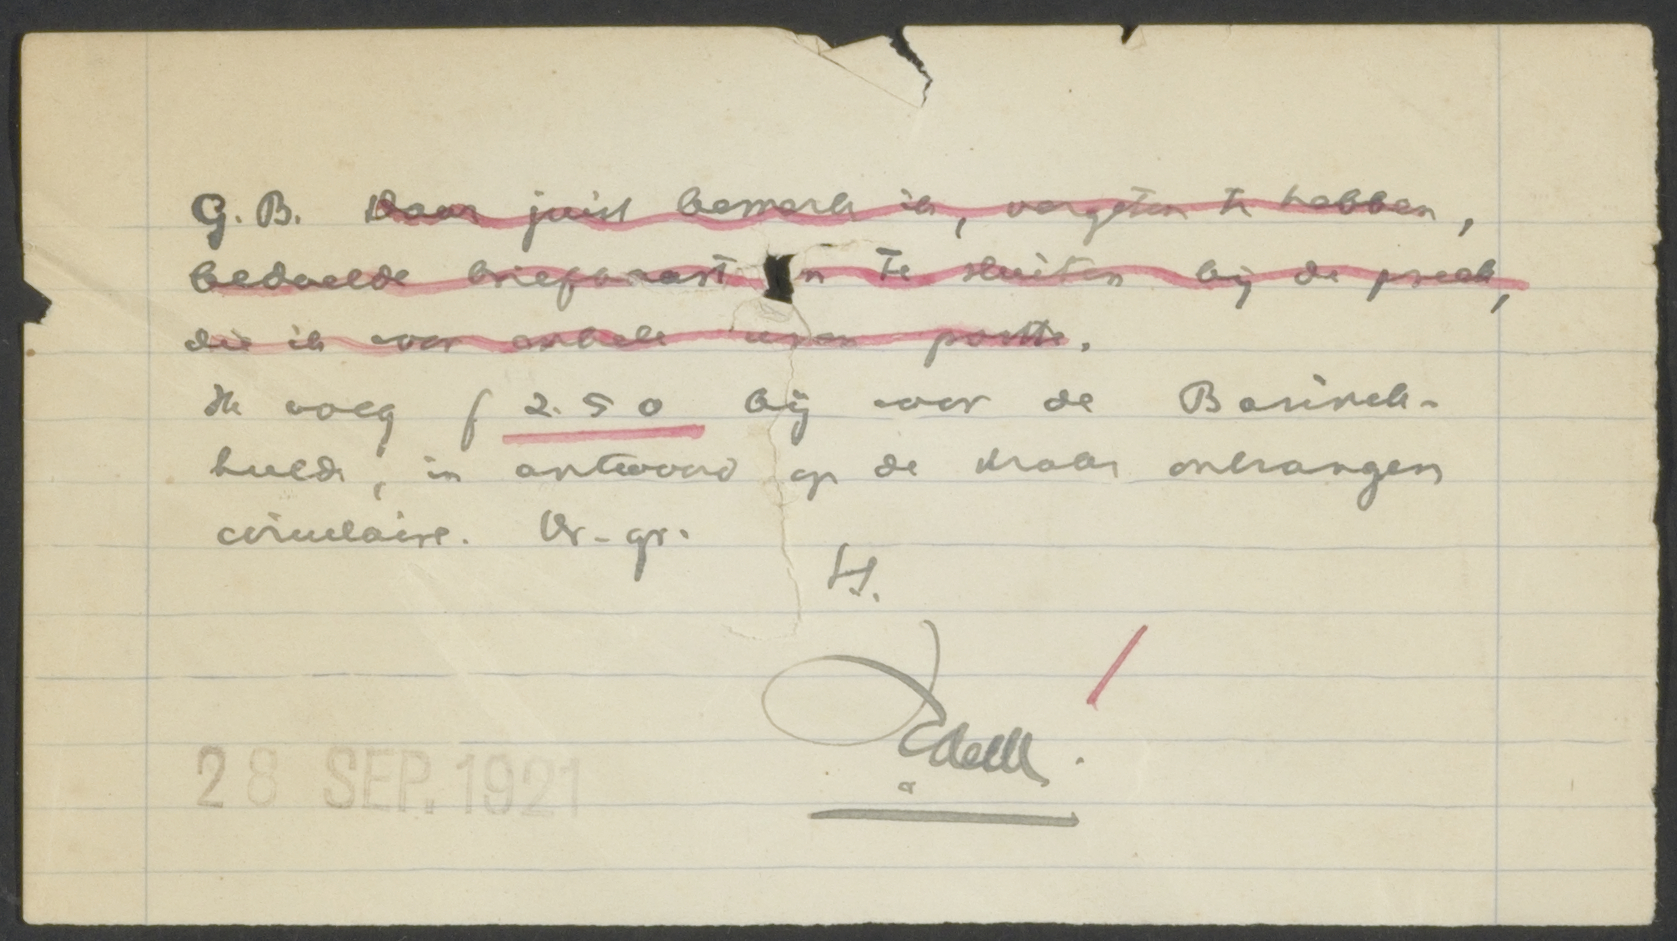 G. B. Daar juist bemerk ik, vergeten te hebben,
bedoelde briefkaart in te sluiten bij de preek,
die ik voor enkele uren postte.
Ik voeg f 2.50 bij voor de Bavinck-
hulde, in antwoord op de dezer ontvangen
circulaire. Vr. gr.
H.
28 SEP. 1921